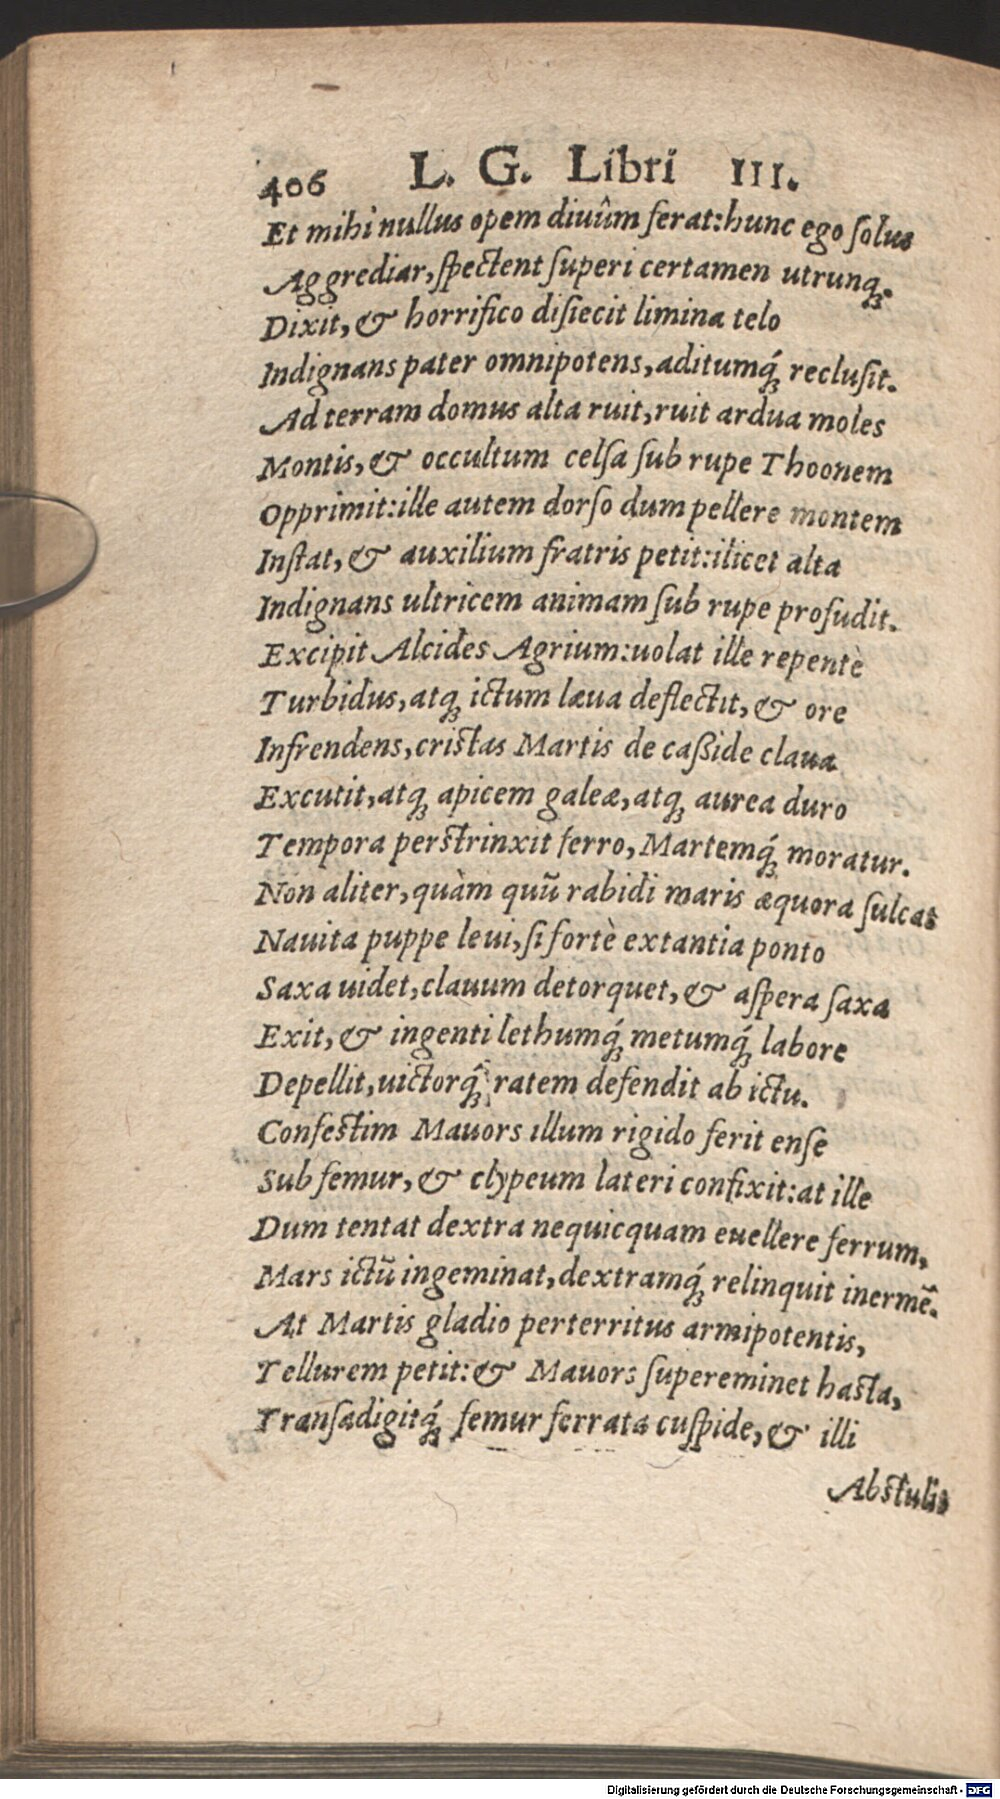 406 L. G. Libri III.
Et mihi nullus opem diuûm ferat:hunc ego ſolus
Aggrediar,ſpectent ſuperi certamen utrunq́;.
Dixit,& horrifico diſiecit limina telo
Indignans pater omnipotens,aditumq́; recluſit.
Ad terram domus alta ruit,ruit ardua moles
Montis,& occultum celſa ſub rupe Thoonem
Opprimit:ille autem dorſo dum pellere montem
Inſtat,& auxilium fratris petit:ilicet alta
Indignans ultricem animam ſub rupe profudit.
Excipit Alcides Agrium:uolat ille repentè
Turbidus,atq; ictum læua deflectit,& ore
Infrendens,criſtas Martis de caßide claua
Excutit,atq; apicem galeæ,atq; aurea duro
Tempora perſtrinxit ferro,Martemq́; moratur.
Non aliter,quàm quũ rabidi maris æquora ſulcat
Nauita puppe leui,ſi fortè extantia ponto
Saxa uidet,clauum detorquet,& aſpera ſaxa
Exit,& ingenti lethumq́; metumq́; labore
Depellit,uictorq́; ratem defendit ab ictu.
Confeſtim Mauors illum rigido ferit enſe
Sub femur,& clypeum lateri confixit:at ille
Dum tentat dextra nequicquam euellere ferrum,
Mars ictũ ingeminat,dextramq́; relinquit inermẽ.
At Martis gladio perterritus armipotentis,
Tellurem petit:& Mauors ſupereminet haſta,
Tranſadigitq́; femur ferrata cuſpide,& illi
Abſtulit
Digitalisierung gefördert durch die Deutsche Forschungsgemeinschaft - DFG